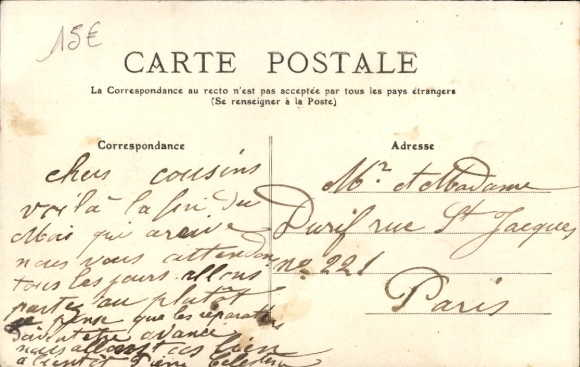 15€
CARTE POSTALE
La Correspondance au recto n'est pas acceptée par tous les pays étrangers
(Se renseigner à la Poste)
Correspondance
Adresse
chers cousins
voilà la fin du
Mois qui arrive
nous vous attendon
tous les jours allons
partez au plutôt
je pense que les réparations
doivent etre avancé
nous allons bien
a bientôt Celestine
Mr et Madame
Durif rue St Jacques
no 221
Paris